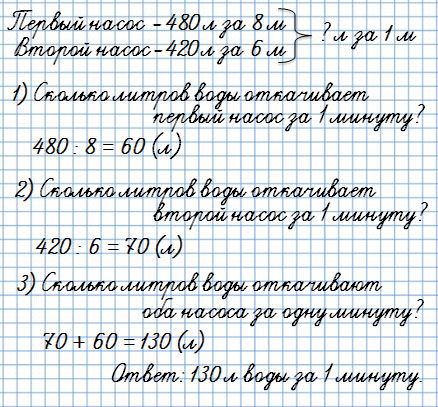 Первый насос - 480 л за 8 м
Второй насос - 420 л за 6 м
? л за 1 м
1) Сколько литров воды откачивает
первый насос за 1 минуту?
480 : 8 = 60 (л)
2) Сколько литров воды откачивает
второй насос за 1 минуту?
420 : 6 = 70 (л)
3) Сколько литров воды откачивают
оба насоса за одну минуту?
70 + 60 = 130 (л)
Ответ: 130 л воды за 1 минуту.